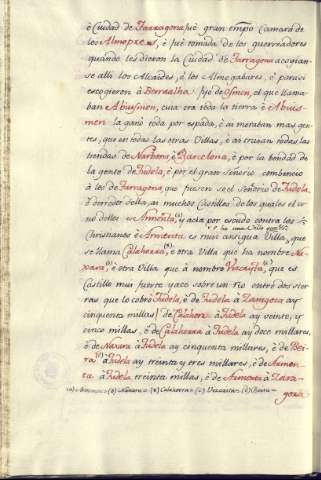 è Ciudad de Tarragona fué gran tiempo Camara de
los Almopres, è fué tomada de los guerreadores
quando les dieron la Ciudad de Tarragona acogian-
se alli los Alcaides, è los Almogabares, è para si
escogieron à Borxalha. fijo de Osmin, el que llama-
ban Abusmen, cuia era toda la tierra è Abuis-
men la ganò toda por espada, è ai moraban mas gen-
tes, que en todas las otras Villas, è ai cruzan todas las
tiendas de Narbona, è Barcelona, è por la bondad de
la gente de Tudela, è por el gran Señorio combencio
à los de Tarragona que fueron so el Señorio de Tudela.
è derredor della ai muchos Castillos de los quales el
uno dellos es Arnedita, y acta por escudo contra los
Christianos è Arnedita es mui antigua Villa, que
è ha una Villa que
se llama Calahorra, è otra Villa que ha nombre Na-
xara, è otra Villa que à nombre Vecaista, que es
Castillo mui fuerte yace sobre un rio entre dos sier-
ras que lo cobrò Tudela, è de Tudela à Zaragoza ay
cinquenta millas de Calahora à Tudela ay veinte, y
cinco millas, è de Calahorra à Tudela ay doce millares,
è de Naxara à Tudela ay cinquenta millares, è de Bei-
ra à Tudela ay treinta y tres millares, è de Arnen-
ta à Tudela treinta millas, è de Arnenta à Zara-
goza